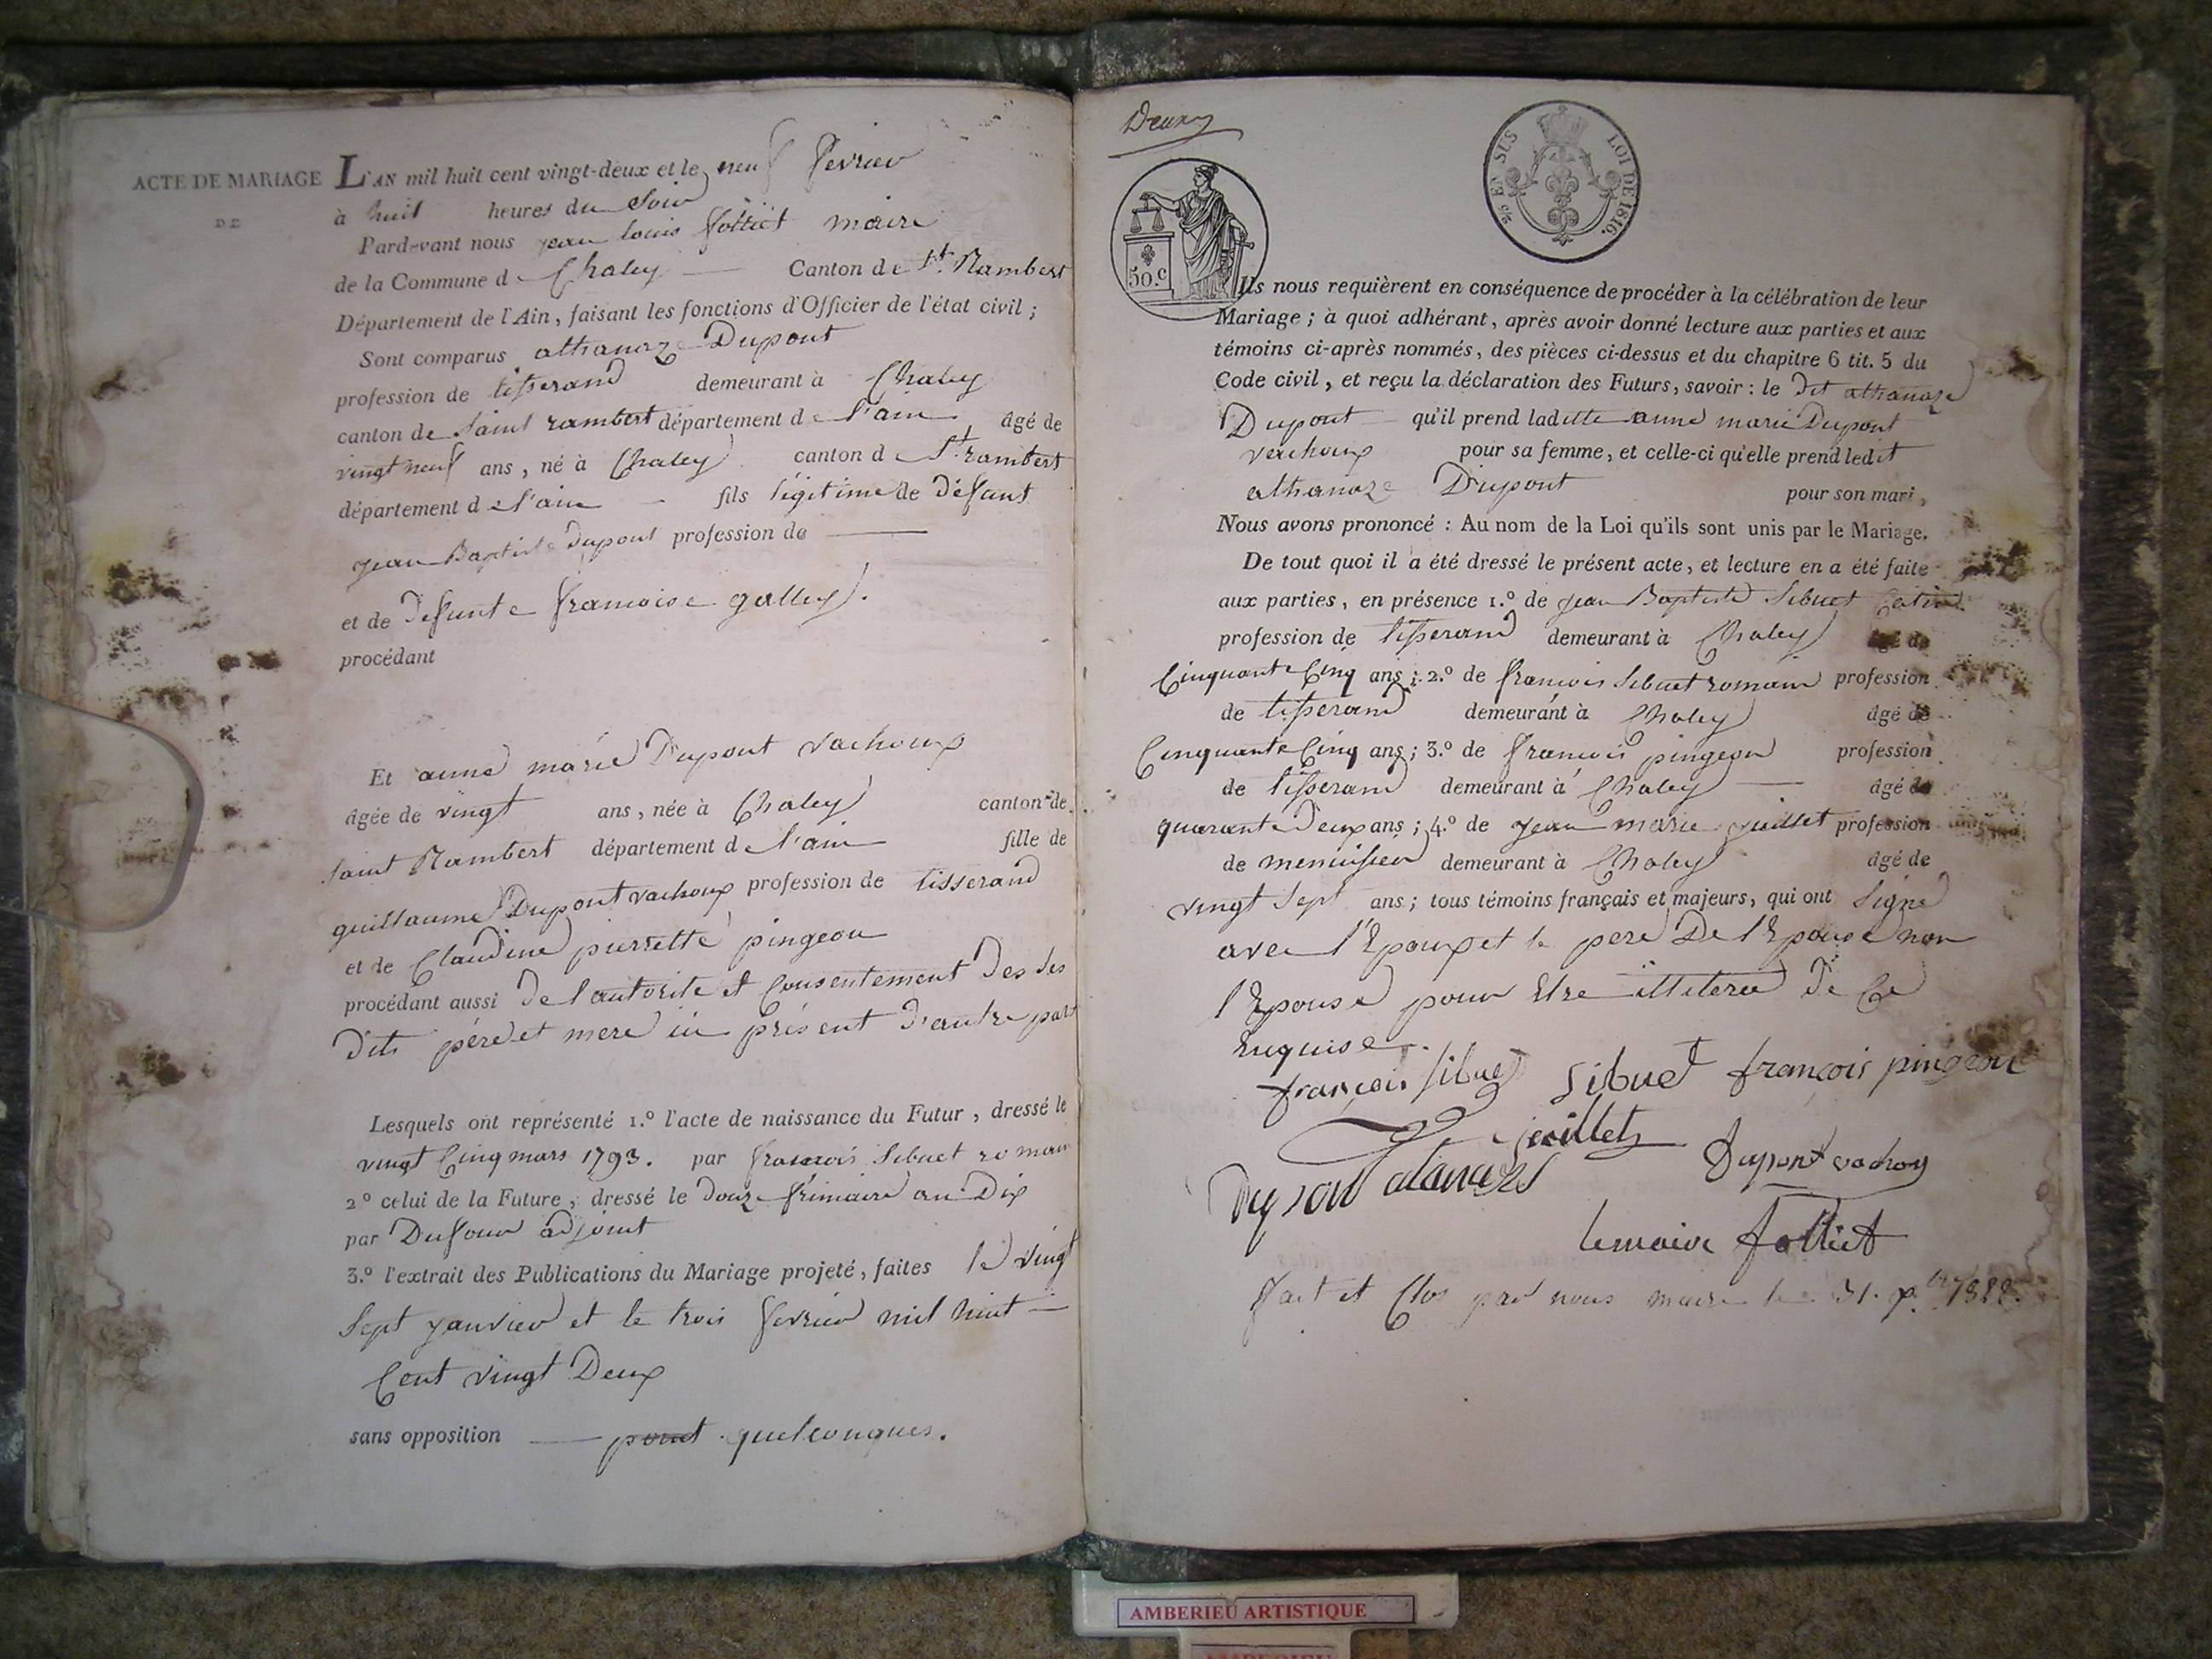 ACTE DE MARIAGE
DE
L'AN mil huit cent vingt-deux et le neuf fevrier
à huit heures du Soir
Pardevant nous jean louis folliet maire
de la Commune de Chaley Canton de St. Rambert
Département de l'Ain, faisant les fonctions d'Officier de l'état civil ;
Sont comparus athanaze Dupont
profession de tisserand demeurant à Chaley
canton de Saint rambert département de l'ain âgé de
vingt neuf ans, né à Chaley canton de St. rambert
département de l'ain fils légitime de Défunt
jean Baptiste Dupont profession de
et de Defunte francoise galley.
procédant
Et anne marie Dupont vachoux
âgée de vingt ans, née à Chaley canton de
saint Rambert département de l'ain fille de
guillaume Dupont vachoux profession de tisserand
et de Claudine pierrette pingeon
procédant aussi De l'autorite et Consentement Des Ses
Dits père et mere ici présent D'autre part
Lesquels ont représenté 1.º l'acte de naissance du Futur, dressé le
vingt Cinq mars 1793. par francois Sibuet romain
2º celui de la Future, dressé le Douze frimaire an Dix
par Dufour adjoint
3.º l'extrait des Publications du Mariage projeté, faites le vingt
Sept janvier et le trois fevrier mil huit
Cent vingt Deux
sans opposition point quelconques.
Deux
50.C
EN SUS
LOI DE 1816.
Ils nous requièrent en conséquence de procéder à la célébration de leur
Mariage ; à quoi adhérant, après avoir donné lecture aux parties et aux
témoins ci-après nommés, des pièces ci-dessus et du chapitre 6 tit. 5 du
Code civil, et reçu la déclaration des Futurs, savoir : le Dit athanaze
Dupont qu'il prend laditte anne marie Dupont
vachoux pour sa femme, et celle-ci qu'elle prend ledit
athanaze Dupont pour son mari,
Nous avons prononcé : Au nom de la Loi qu'ils sont unis par le Mariage.
De tout quoi il a été dressé le présent acte, et lecture en a été faite
aux parties, en présence 1.º de jean Baptiste Sibuet Catin
profession de tisserand demeurant à Chaley âgé de
Cinquante Cinq ans ; 2.º de francois Sibuet romain profession
de tisserand demeurant à Chaley âgé de
Cinquante Cinq ans ; 3.º de francois pingeon profession
de tisserand demeurant à Chaley âgé de
quarante Deux ans ; 4.º de jean marie juillet profession
de menuisier demeurant à Chaley âgé de
vingt Sept ans ; tous témoins français et majeurs, qui ont Signé
avec l'Epoux et le pere De l'Epouse non
l'Epouse pour Etre illiteree De Ce
Enquise.
françois Sibuet Sibuet françois pingeon
juillet
Dupont vachoux
Dupont atanaze
lemaire folliet
fait et Clos par nous maire le 31. Xbre 1822.
AMBERIEU ARTISTIQUE